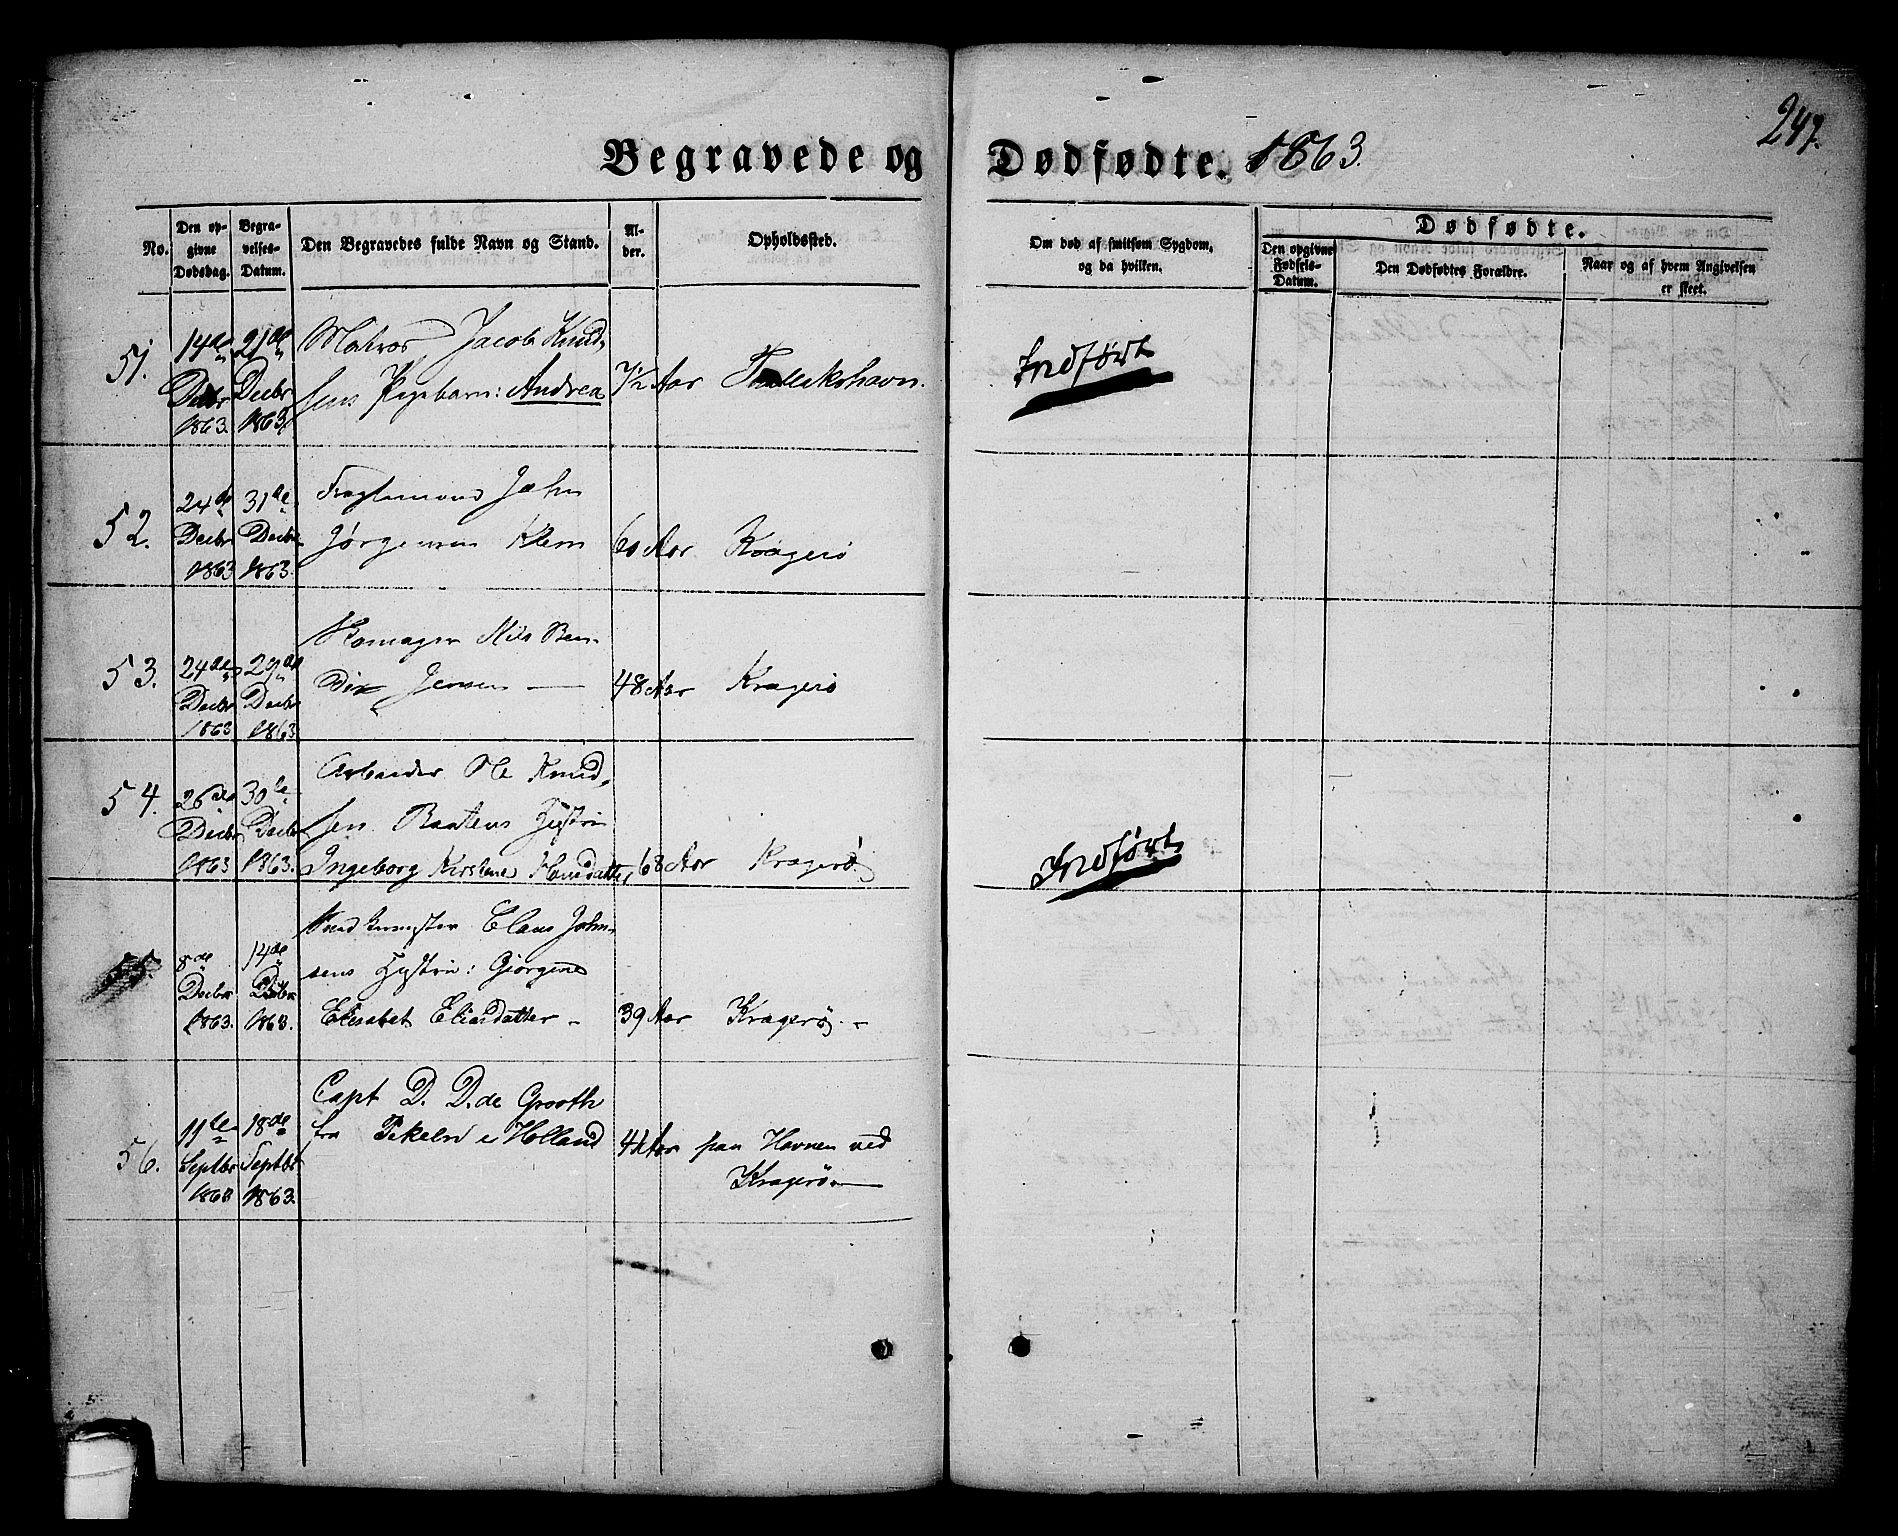 247.
Begravede og Dødfødte. 1863.
No.
Den opgivne Dødsdag.
Begravelses-Datum.
Den Begravedes fulde Navn og Stand.
Alder.
Opholdssted.
Om død af smitsom Sygdom, og da hvilken.
Dødfødte.
Den opgivne Fødsels-Datum.
Den Dødfødtes Forældre.
Naar og af hvem Angivelsen er skeet.
51.
14de Decbr 1863.
21de Decbr 1863.
Matros Jacob Knud-
sens Pigebarn: Andrea
½ Aar
Frederikshavn.
Indført
52.
24de Decbr 1863
31de Decbr 1863.
John
Jørgensen Klem
60 Aar
Kragerö
53.
24de Decbr 1863
29de Decbr 1863.
Skomager Nils Ben-
dix Jensen —
48 Aar
Kragerö
54.
26de Decbr 1863
30te Decbr 1863.
Arbeider Ole Knud-
sen Hustru
Ingeborg Kirstine Hansdatter
68 Aar
Kragerø
Indført
55.
8de Decbr 1863.
14de Decbr 1863.
Claus John-
sens Hustru: Gjorgine
Elisabet Eliasdatter -
39 Aar
Kragerø. -
56.
11te Septbr 1863
18de Septbr 1863.
Capt D. D. de Grooth
fra Pekela i Holland
44 Aar
paa Havnen ved
Kragerø —